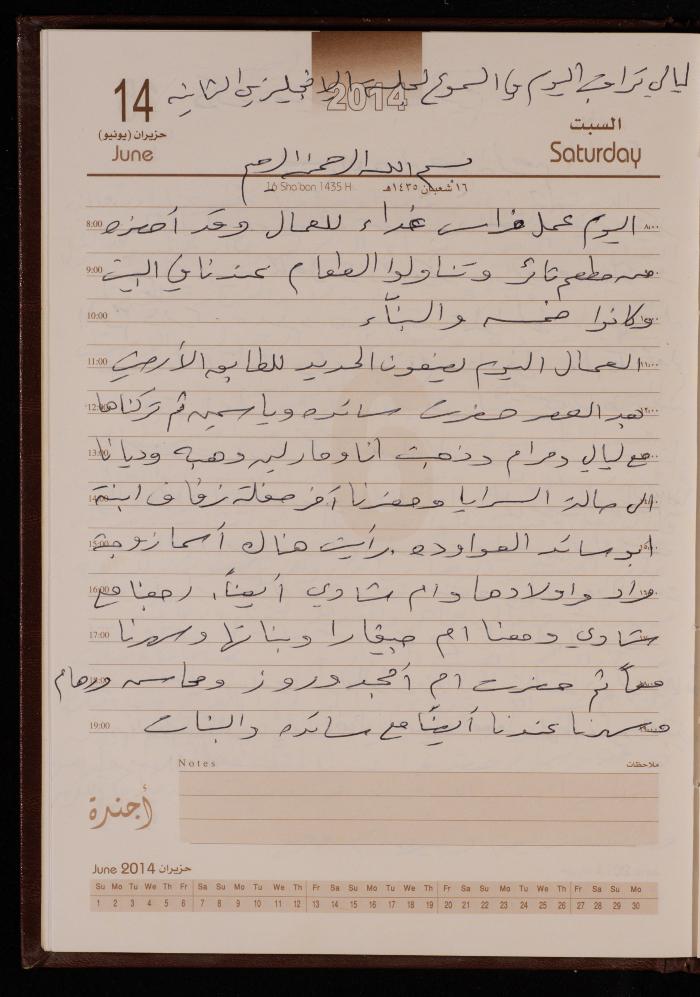 ليالي تراقب اليوم في السموع لجلسة الإنجليزي الثانية
2014
14
حزيران (يونيو)
June
السبت
Saturday
بسم الله الرحمن الرحيم
16 Sha'ban 1435 H
١٦ شعبان ١٤٣٥هـ
8:00 اليوم عمل فراس غداء للعمال وقد أحضره ٨:٠٠
9:00 من مطعم ثائر وتناولوا الطعام عندنا في البيت
10:00 وكانوا خمسه والبنّاء
11:00 العمال اليوم يصفون الحديد للطابق الأرضي
12:00 بعد العصر حضرت سائده وياسمين ثم تركناها
13:00 مع ليالي ومرام وذهبت أنا ومارلين وهبه وديانا
14:00 الى صالة السرايا وحضرنا آخر حفلة زفاف ابنة
15:00 ابو سائد العواوده. رأيت هناك أسما زوجة
16:00 مراد واولادها وام شادي أيضاً، رجعنا مع
17:00 شادي ومعنا ام وبناتها وسهرنا
18:00 معاً ثم حضرت ام أمجد وروز ومحاسن ورهام
19:00 وسهرنا عندنا أيضاً مع سائده والبنات
Notes
ملاحظات
أجندة
June 2014 حزيران
Su Mo Tu We Th Fr Sa Su Mo Tu We Th Fr Sa Su Mo Tu We Th Fr Sa Su Mo Tu We Th Fr Sa Su Mo
1 2 3 4 5 6 7 8 9 10 11 12 13 14 15 16 17 18 19 20 21 22 23 24 25 26 27 28 29 30